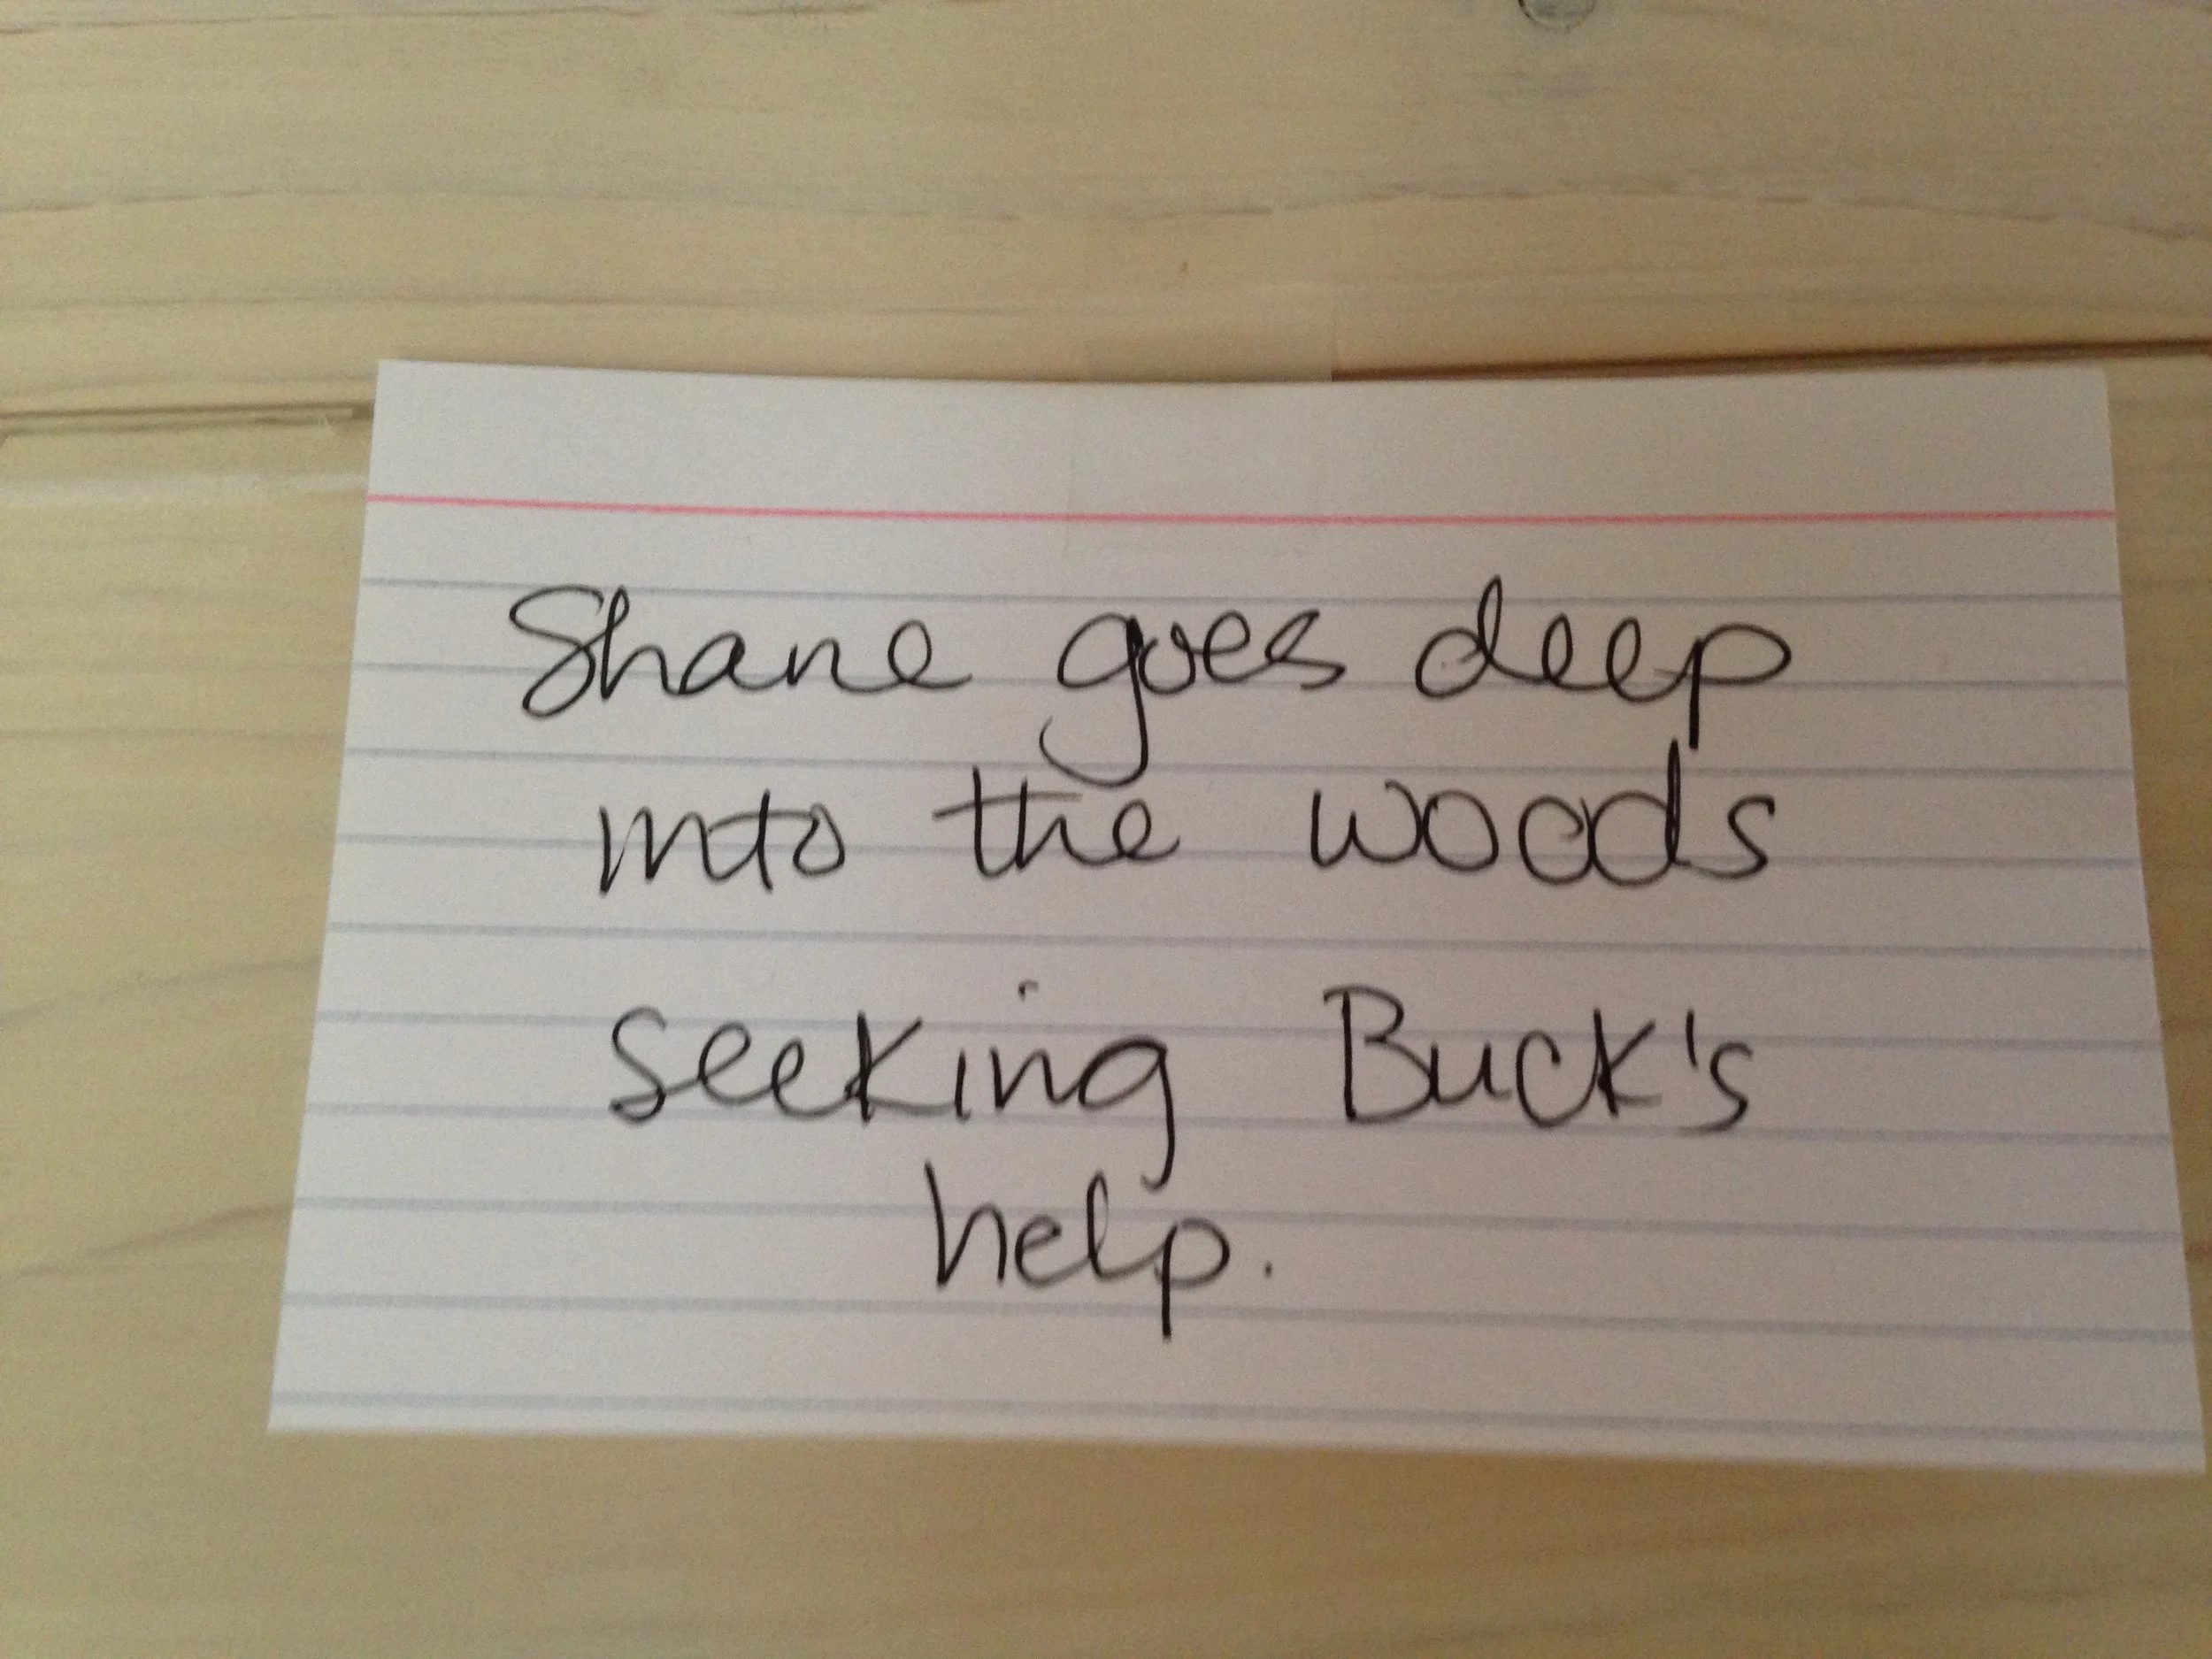 Shane goes deep
into the woods
seeking Buck's
help.